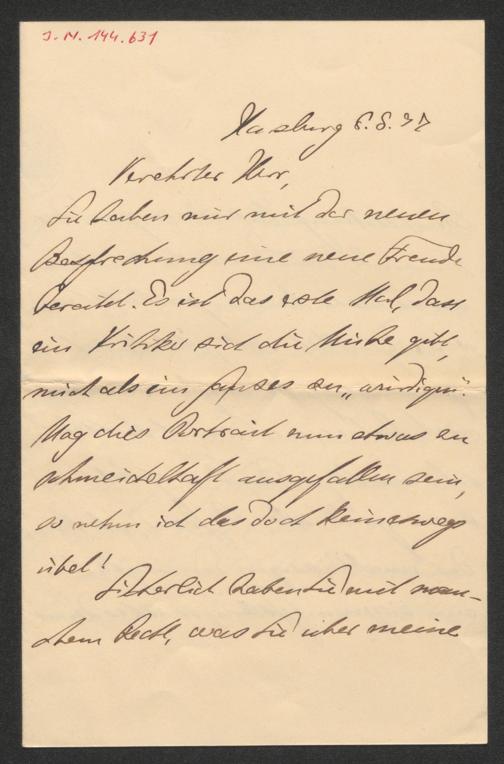 J. N. 144.631
6.8.37
Verehrter Herr,
Sie haben mir mit der neuen
Besprechung eine neue Freude
bereitet. Es ist das erste Mal, dass
ein Kritiker sich die Mühe gibt,
mich als ein ganzes zu „würdigen“.
Mag dies Portrait nun etwas zu
schmeichelhaft ausgefallen sein,
so nehm ich das doch keineswegs
übel!
Sicherlich haben Sie mit man-
chem Recht, was Sie über meine